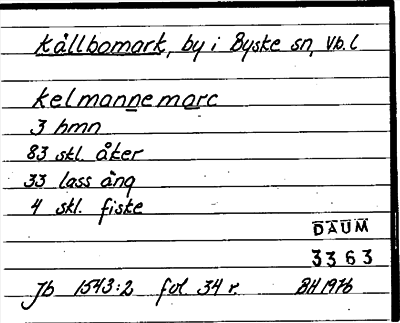 Kållbomark, by i Byske sn, Vb. l
kelmannemarc
3 hmn
83 skl. åker
33 lass äng
4 skl. fiske
DAUM
3363
Jb 1543:2 fol 34 r. BH 1976